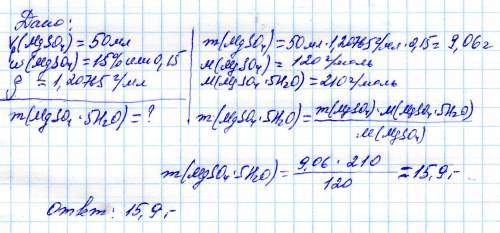 Дано:
V(MgSO4) = 50мл
w(MgSO4) = 15% или 0,15
ρ = 1,20765 г/мл
m(MgSO4·5H2O) = ?
m(MgSO4) = 50мл·1,20765 г/мл·0,15 = 9,06 г
M(MgSO4) = 120 г/моль
M(MgSO4·5H2O) = 210 г/моль
m(MgSO4·5H2O) = m(MgSO4)·M(MgSO4·5H2O) / M(MgSO4)
m(MgSO4·5H2O) = 9,06·210 / 120 = 15,9,-
Ответ: 15,9,-